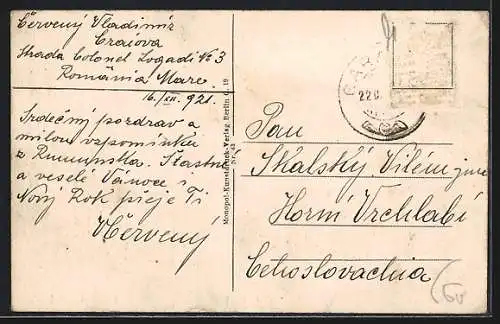 Červený Vladimír
Craiova
Strada Colonel Logadi № 3
România Mare.
16./XII. 921.
Srdečný pozdrav a
milou vzpomínku
z Rumunska. Šťastné
a veselé Vánoce i
Nový Rok přeje Ti
VČervený
Monopol-Kunstdruck-Verlag Berlin C. 19
Nr. 43
22
Pan
Skalský Vilém, jun
Horní Vrchlabí
Cehoslovachia